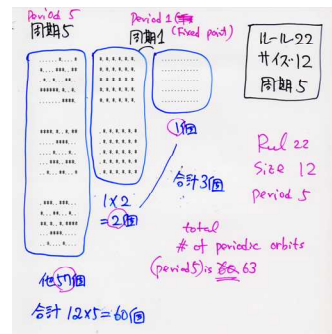 Period 5
周期5
Period 1
(Fixed point)
周期1
ルール22
サイズ12
周期5
1個
1×2
=2個
合計3個
Rul 22
Size 12
period 5
total
# of periodic orbits
(period5) is 63
他57個
合計 12×5=60個